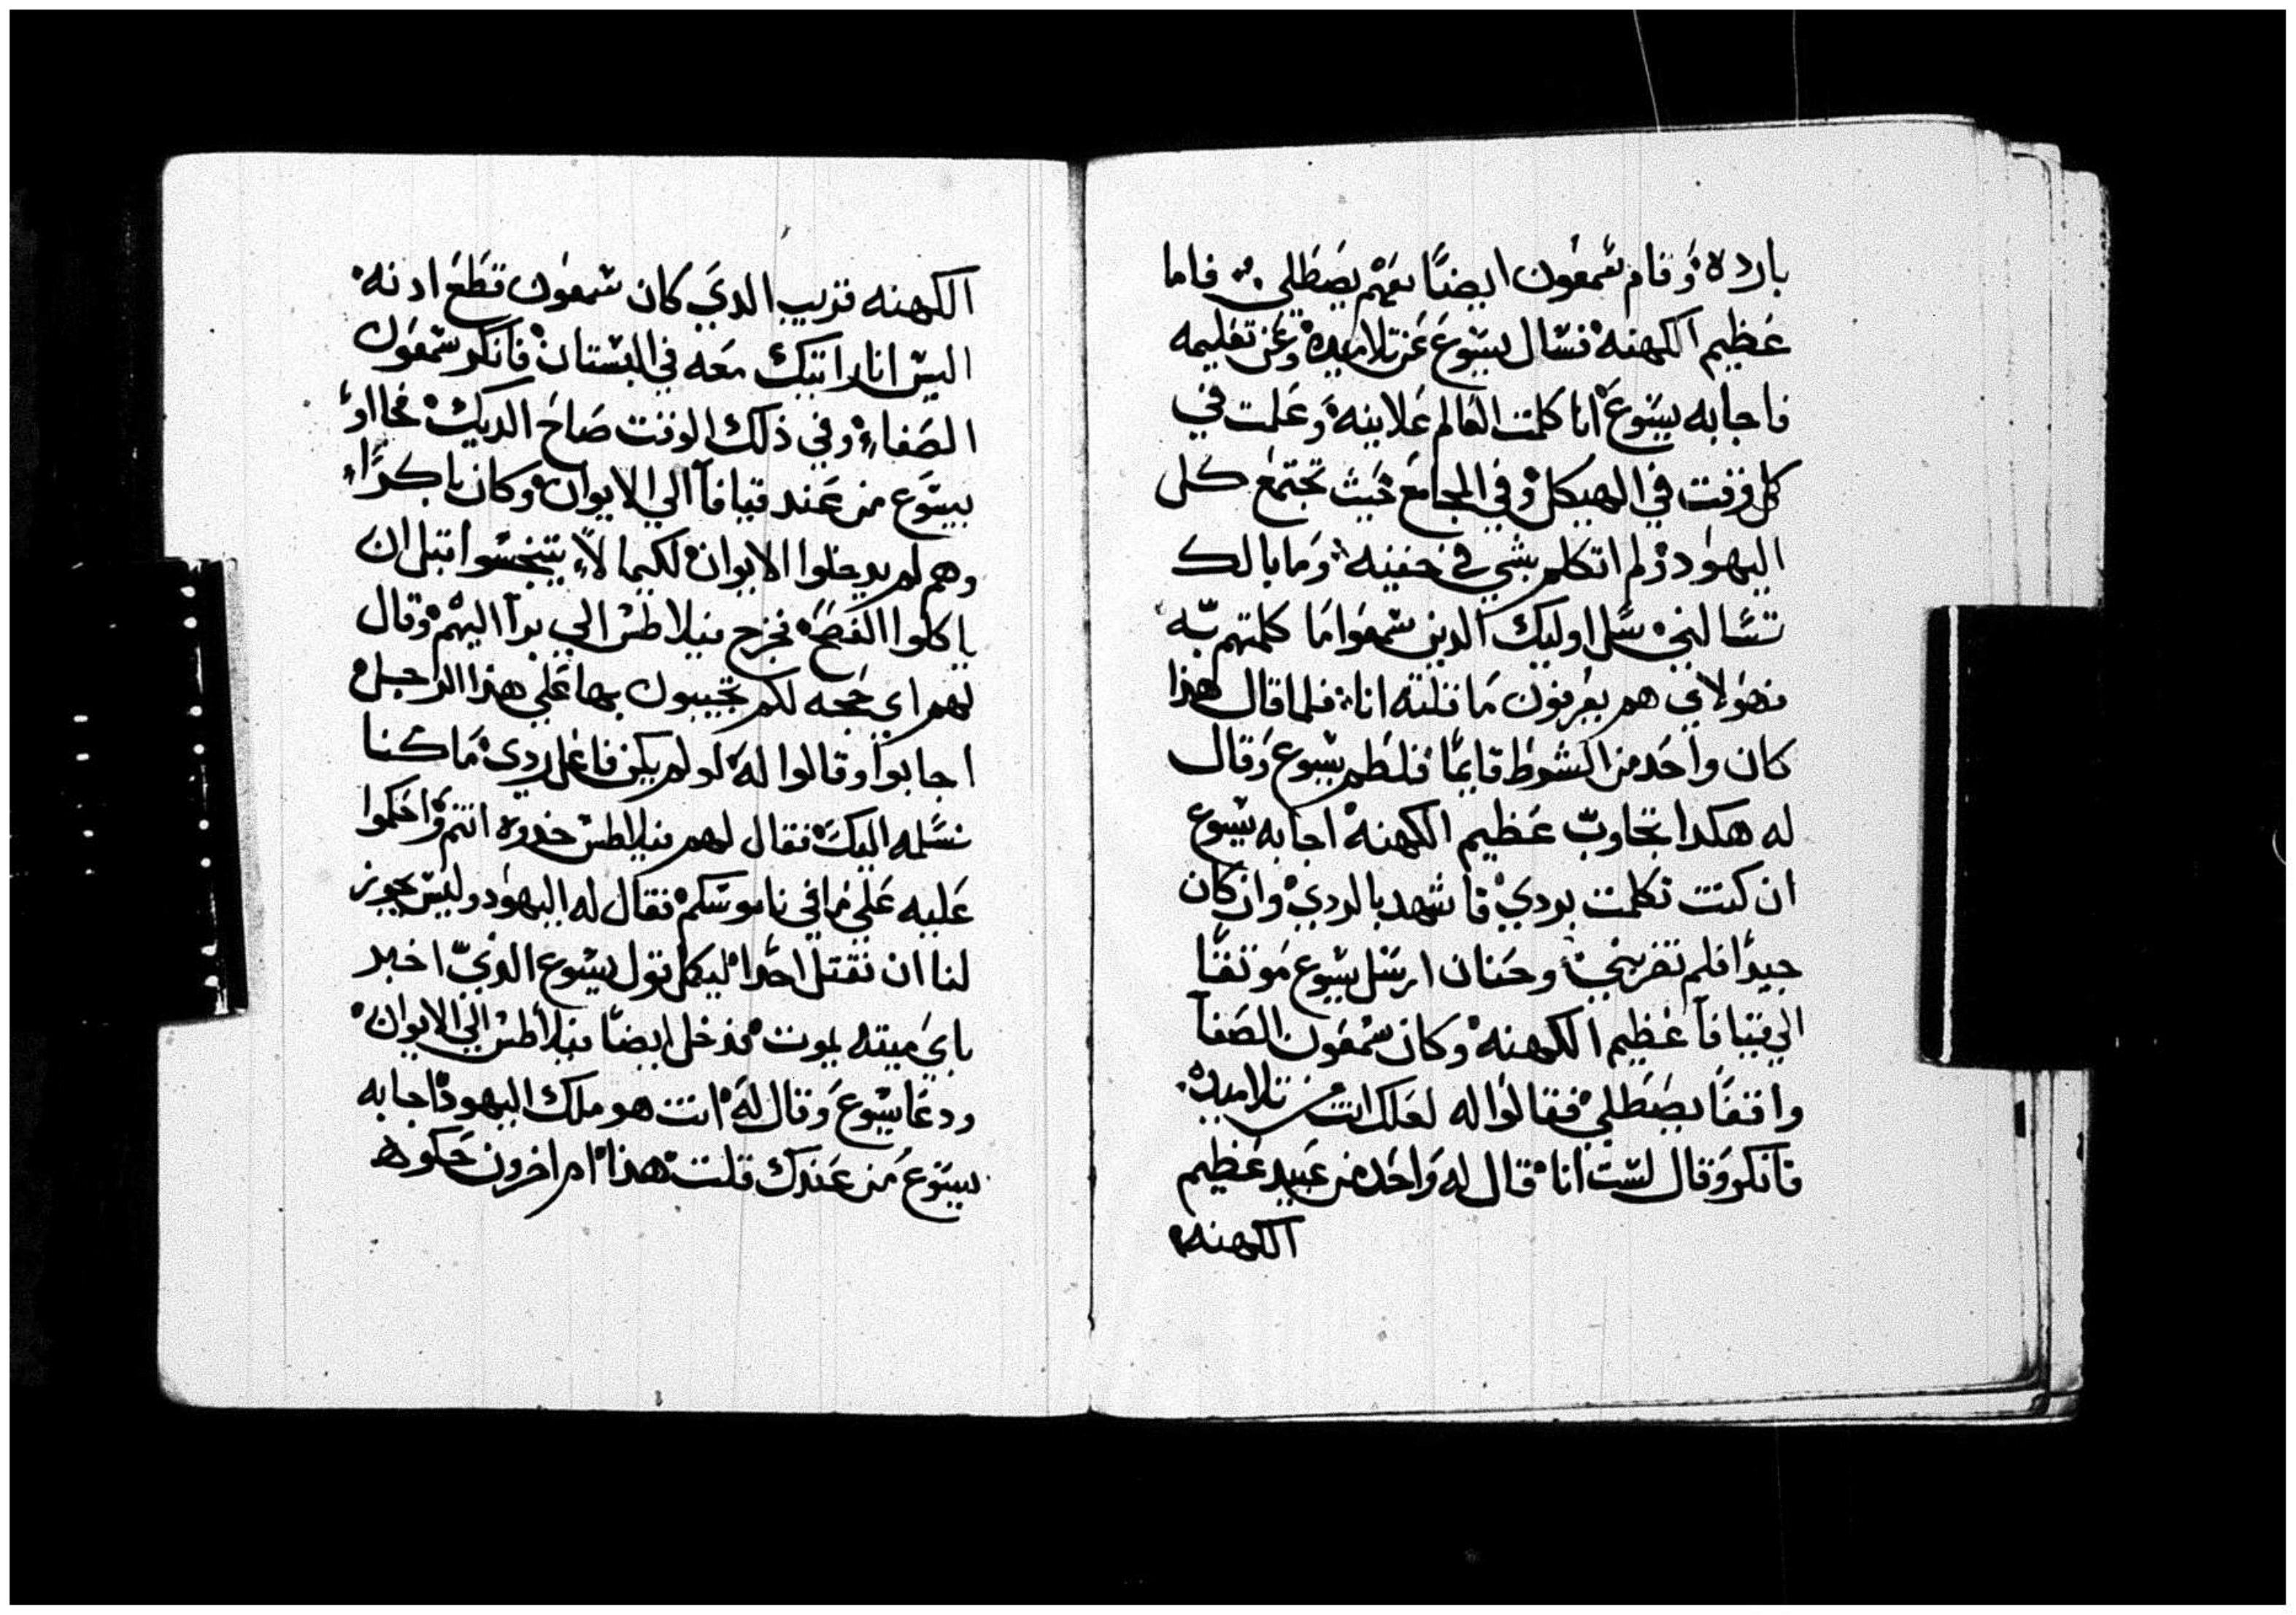 بارده وقام شمعون ايضًا معهم يصطلي ܀ فاما
عظيم الكهنه فسال يسوع عن تلاميده وعن تعليمه
فاجابه يسوع انا كلمت العالم علانيه وعلمت في
كل وقت في الهيكل وفي المجامع حيث تجتمع كل
اليهود ولم اتكلم بشي في خفيه وما بالك
تسالني سل اوليك الدين سمعوا ما كلمتهم به
فهولاي هم يعرفون ما قلته انا فلما قال هذا
كان واحد من الشوط قايمًا فلطم يسوع وقال
له هكدا تجاوب عظيم الكهنه اجابه يسوع
ان كنت تكلمت بردي فاشهد بالردي وان كان
جيدًا فلم تضربني وحنان ارسل يسوع موثقًا
الي قيافآ عظيم الكهنه وكان شمعون الصفآ
واقفًا يصطلي فقالوا له لعلك انت من تلاميده
فانكر وقال لست انا قال له واحد من عبيد عظيم
الكهنه
الكهنه قريب الدي كان شمعون قطع ادنه
اليس انا راتيك معه في البستان فانكر شمعون
الصفاء وفي ذلك الوقت صاح الديك فجااو
بيسوع من عند قيافآ الي الايوان وكان باكرًا
وهم لم يدخلوا الايوان لكيما لا يتنجسوا قبل ان
ياكلوا الفصح فخرج فيلاطس الي برآ اليهم وقال
لهم اي حجه لكم تجيبون بها علي هذا الراجل
اجابوا وقالوا له لو لم يكن فاعل ردي ما كنا
نسلمه اليك فقال لهم فيلاطس خدوه انتم واحكموا
عليه علي ما في ناموسكم فقال له اليهود وليس يجوز
لنا ان نقتل احدًا ليكمل قول يسوع الذي اخبر
باي ميته يموت فدخل ايضًا فيلاطس الي الايوان
ودعا يسوع وقال له انت هو ملك اليهود فاجابه
يسوع من عندك قلت هذا ام اخرون حكوه